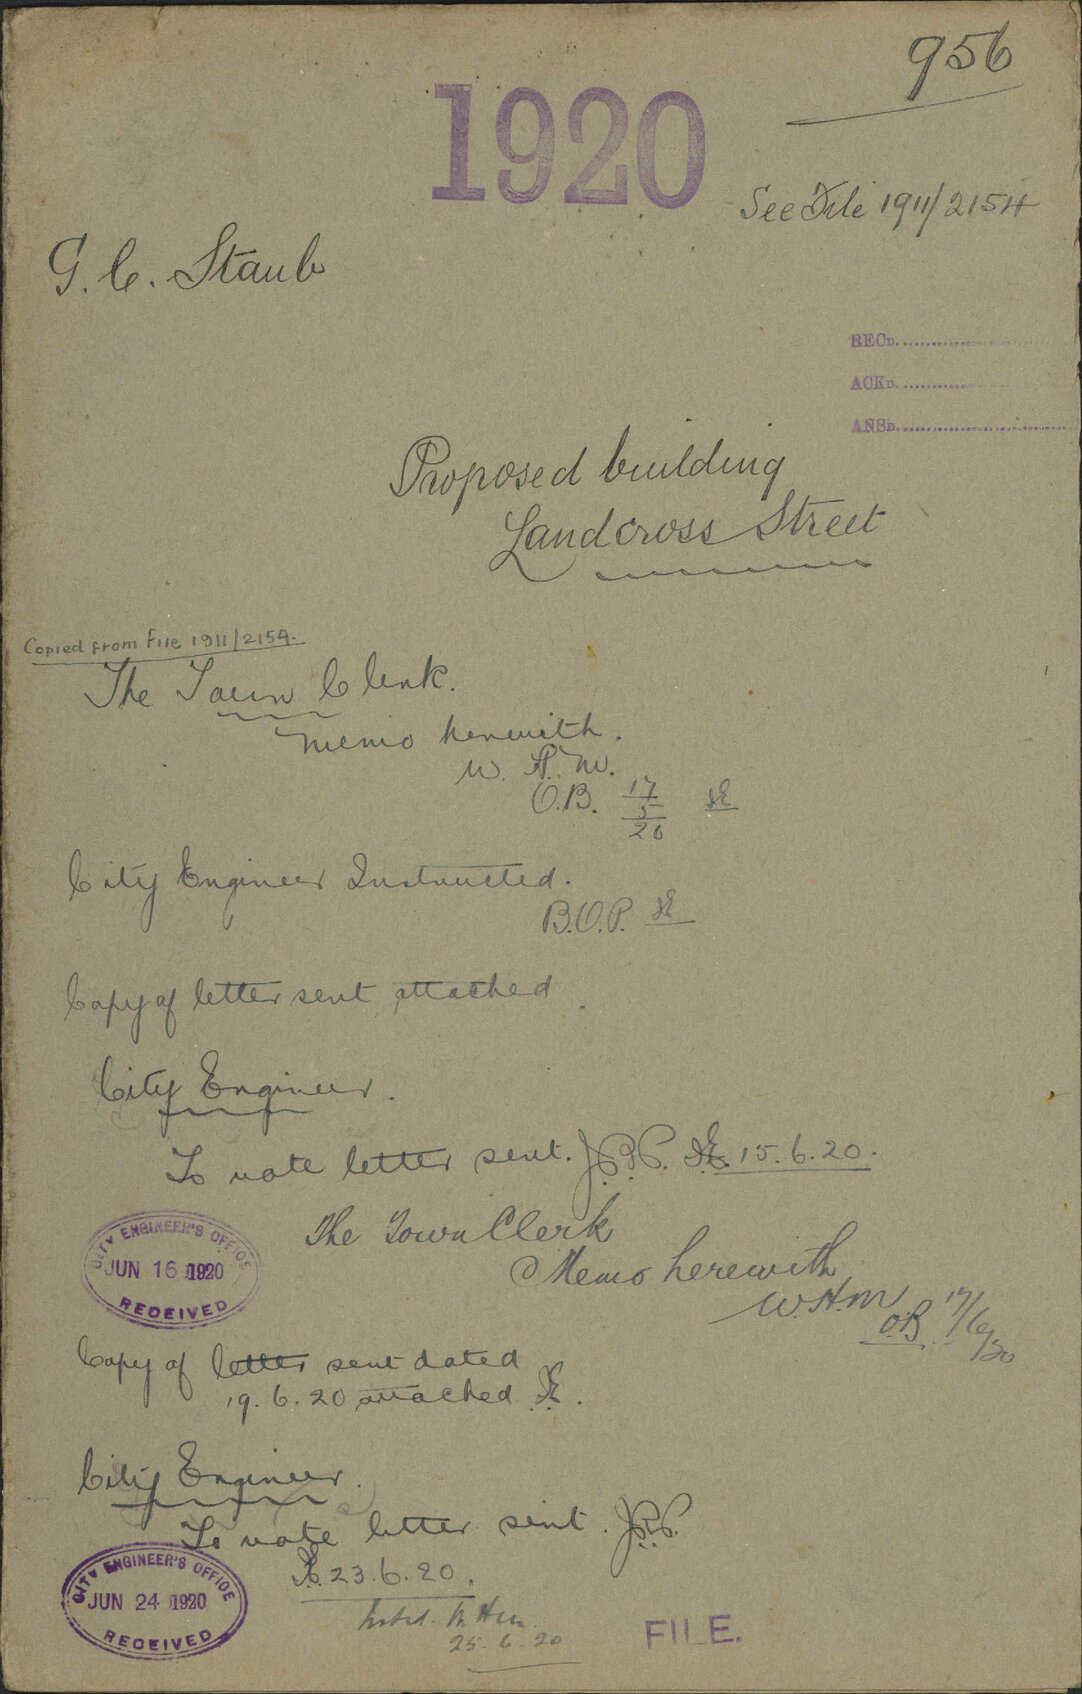 956
1920
See File 1911/2154
G. C. Staub
RECD.
ACKD.
ANSD.
Proposed building
Landcross Street
Copied from File 1911/2154.
The Town Clerk.
Memo herewith.
W. H. M.
O.B. 17/5/20
City Engineer Instructed.
B.O.P.
Copy of letter sent attached
City Engineer.
To note letter sent. 15.6.20.
CITY ENGINEER'S OFFICE
JUN 16 1920
RECEIVED
The Town Clerk
Memo herewith
W.H.M
O.B. 17/6/20
Copy of letter sent dated
19.6.20 attached
City Engineer.
To note letter sent.
23.6.20.
CITY ENGINEER'S OFFICE
JUN 24 1920
RECEIVED
25.6.20
FILE.